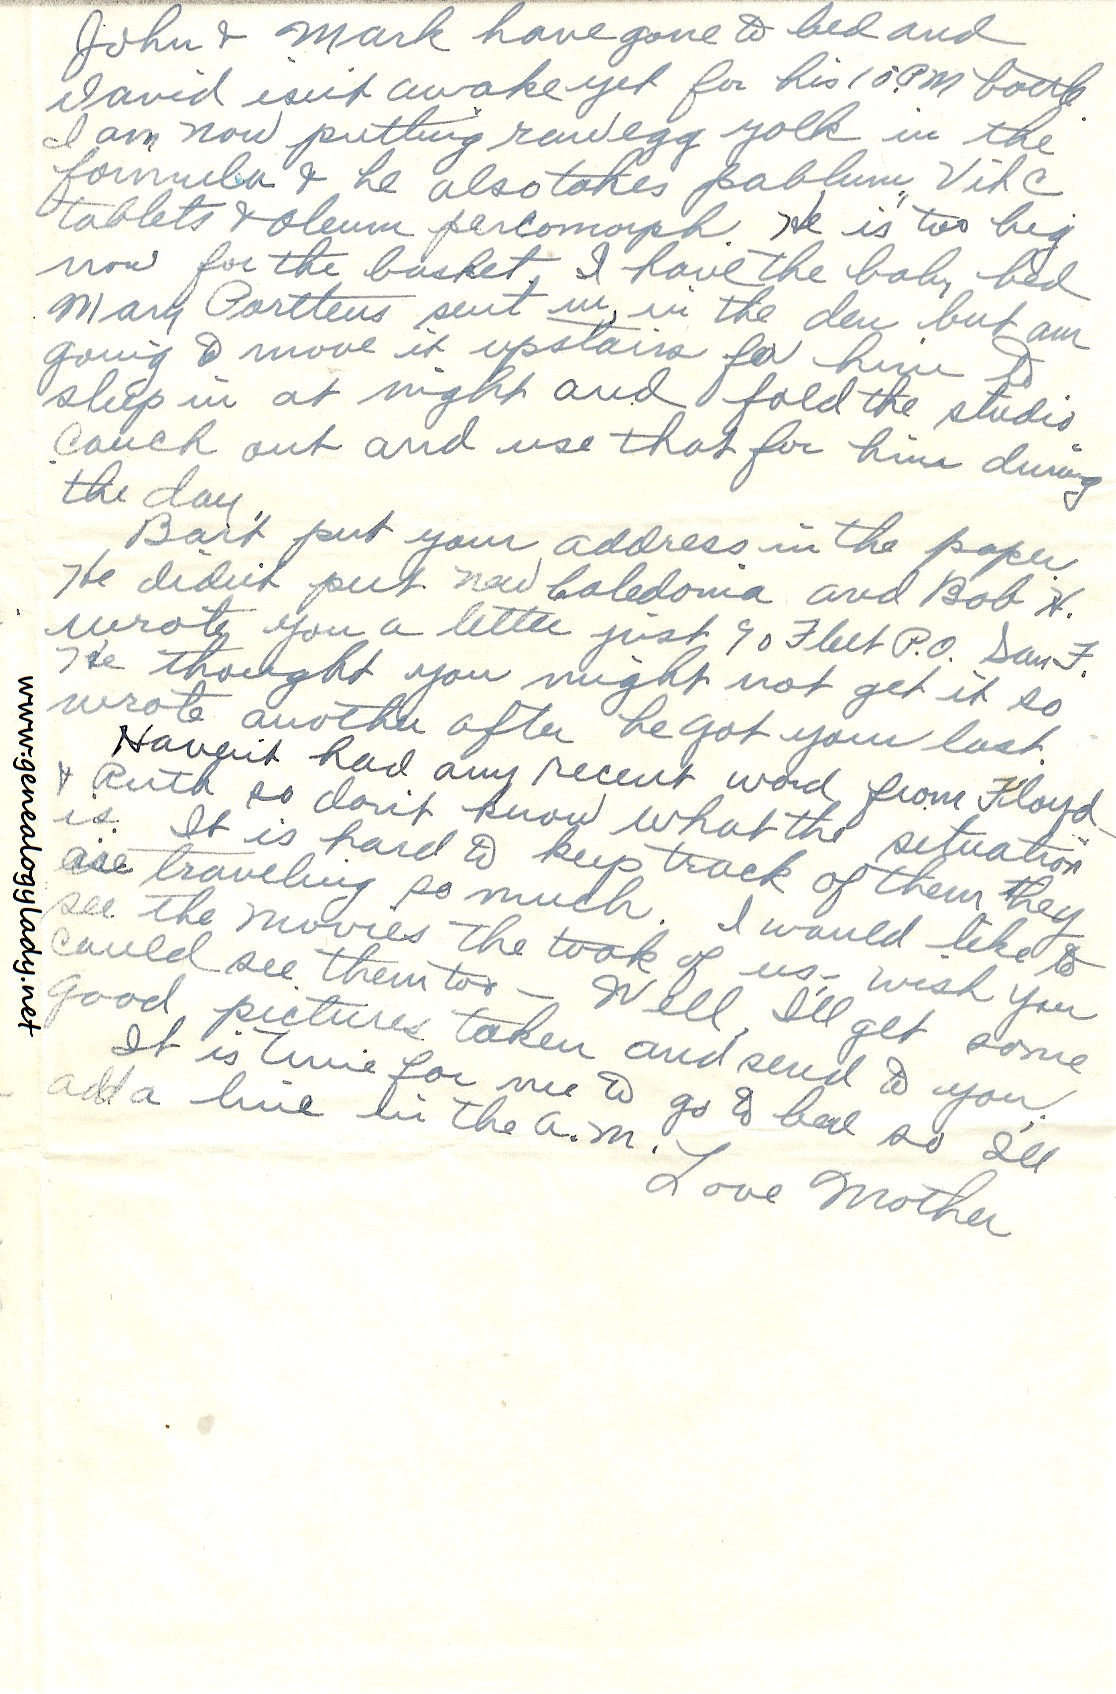 John & Mark have gone to bed and
David isn't awake yet for his 10 P.M bottle
I am now putting raw egg yolk in the
formula & he also takes pablum, Vit C
tablets & oleum percomorph. He is too big
now for the basket, I have the baby bed
Mary sent us, in the den but am
going to move it upstairs for him to
sleep in at night and fold the studio
couch out and use that for him during
the day.
Bart put your address in the paper
He didn't put New Caledonia and Bob H.
wrote you a letter just % Fleet P.O. San F.
He thought you might not get it so
wrote another after he got your last.
Haven't had any recent word from Floyd
& Ruth so don't know what the situation
is. It is hard to keep track of them they
are traveling so much. I would like to
see the movies the took of us - wish you
could see them too - Well, I'll get some
good pictures taken and send to you.
It is time for me to go to bed so I'll
add a line in the a.m.
Love Mother
www.genealogylady.net